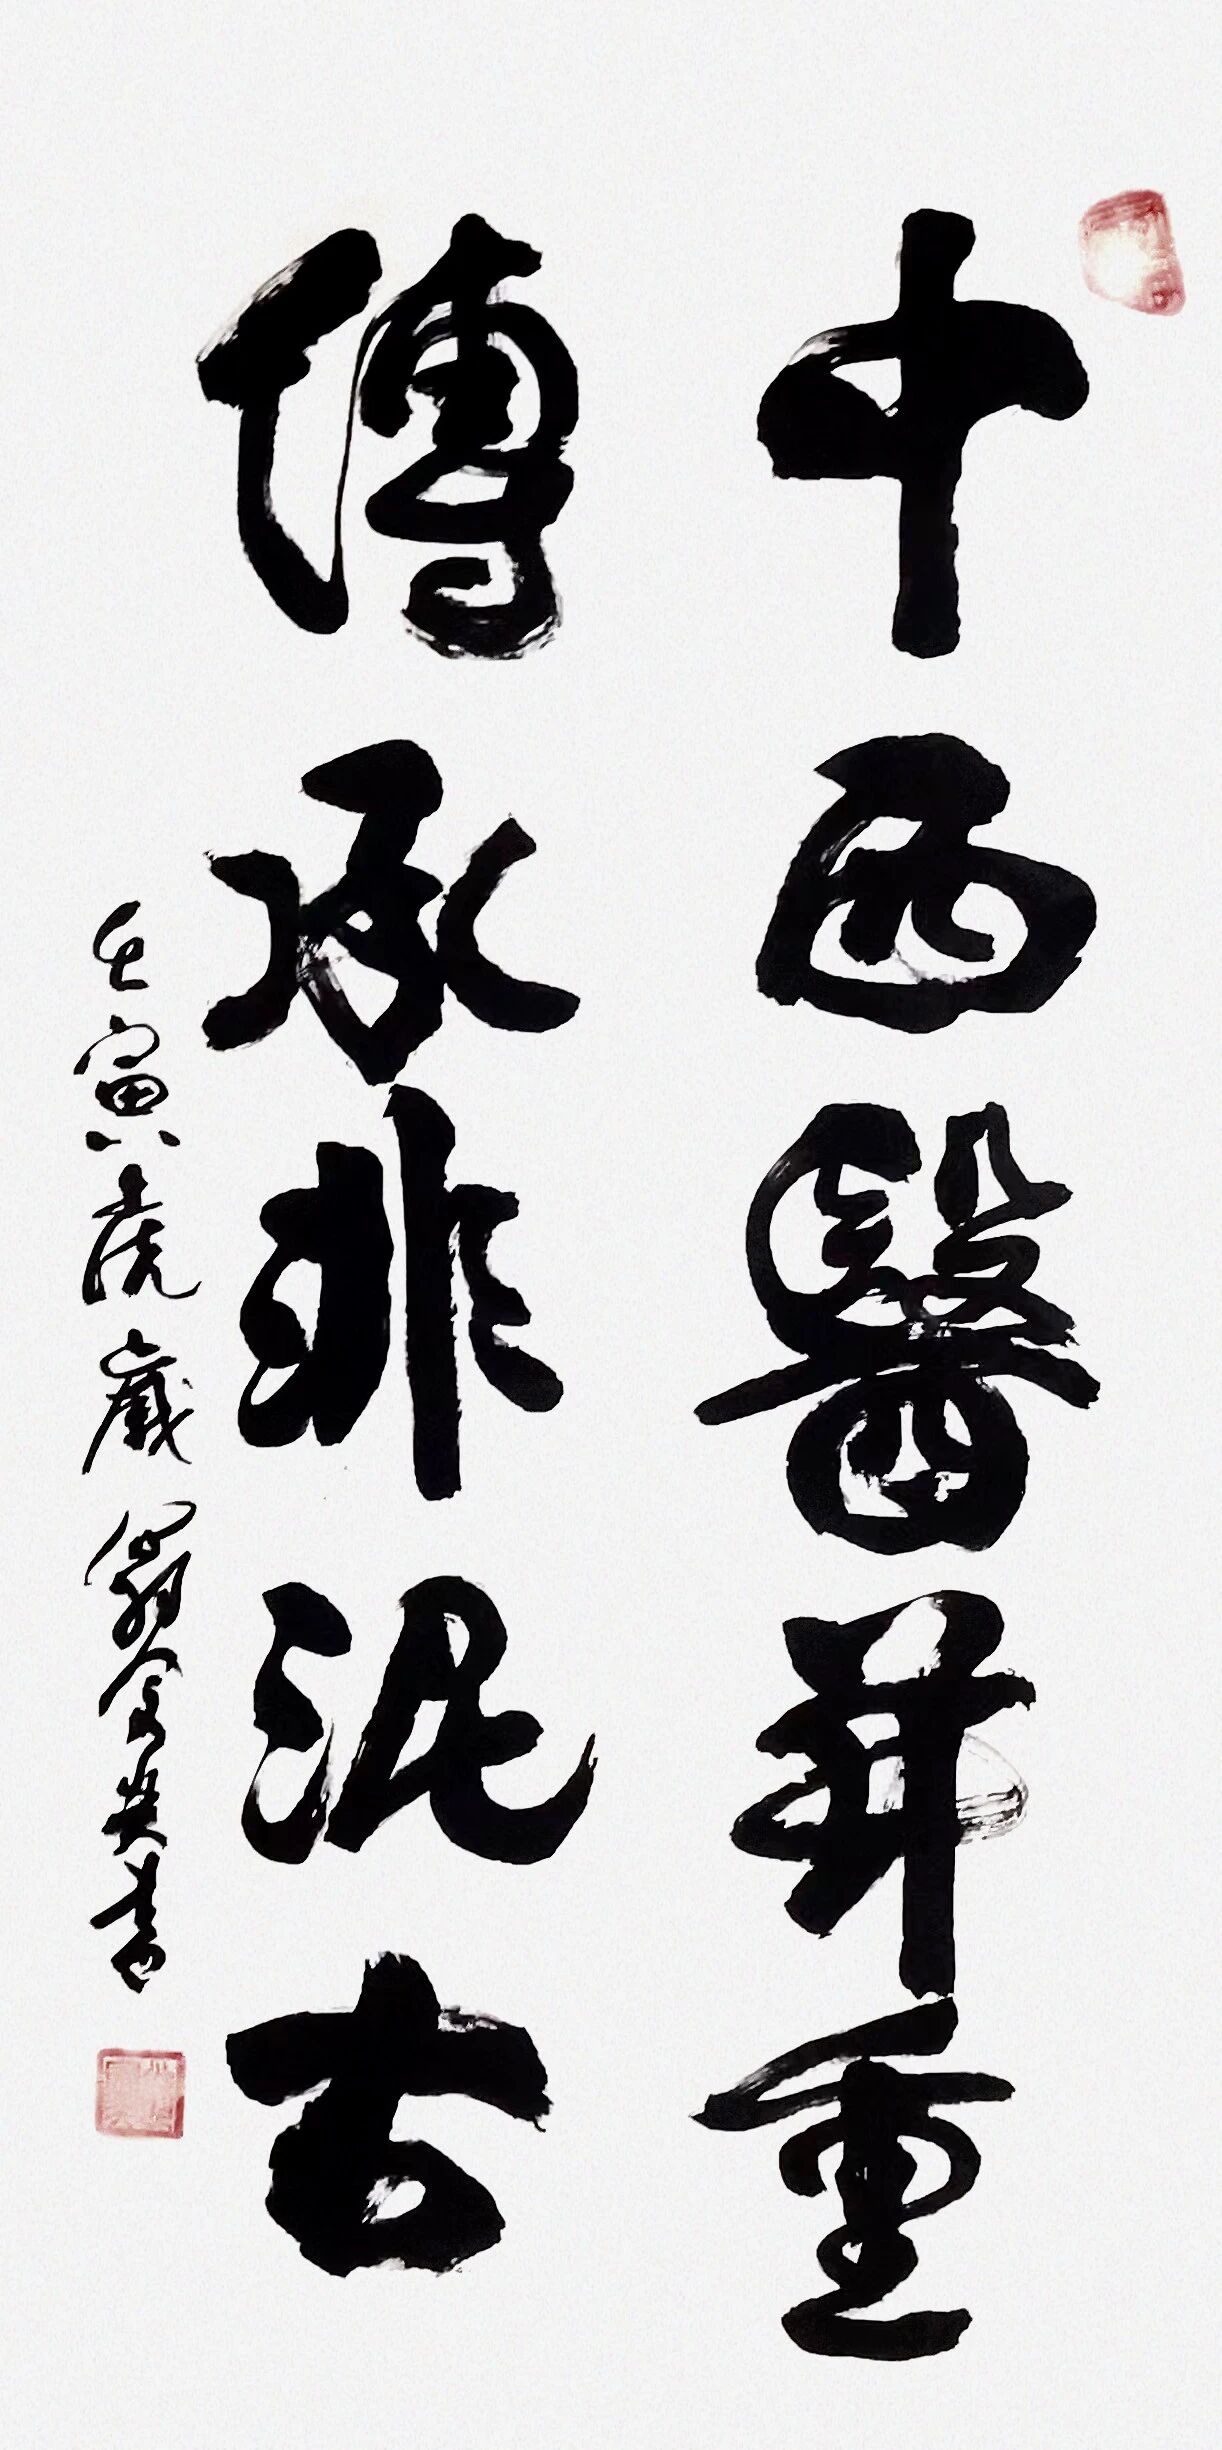 中西醫並重
傳承非泥古
壬寅虎歲 金英書